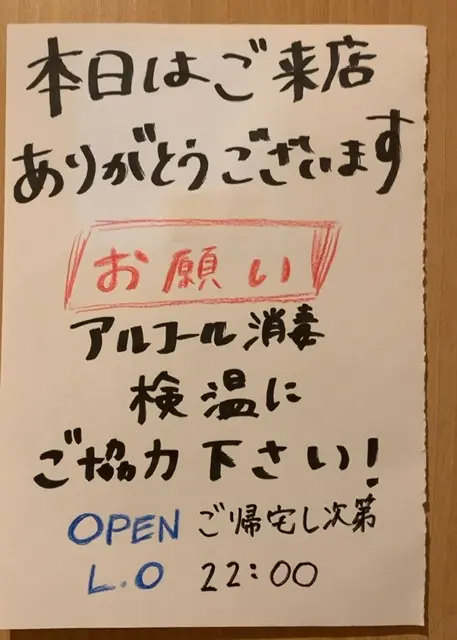 本日はご来店
ありがとうございます
お願い
アルコール消毒
検温に
ご協力下さい!
OPEN ご帰宅し次第
L.O 22:00